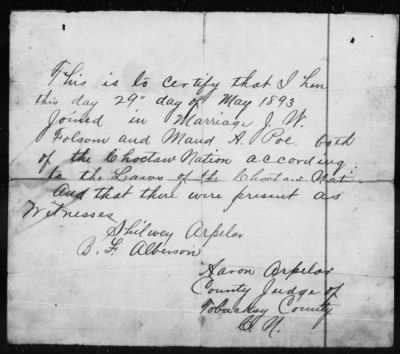 This is to certify that I hav
this day 29" day of May 1893
Joined in Marriage J. W.
Folsom and Maud A. Poe both
of the Choctaw Nation according
to the Laws of the Choctaw Nati
And that there were present as
Witnesses
Shilwey Arpelar
B. F. Alberson
Aaron Arpelar
County Judge of
Tobucksy County
C. N.